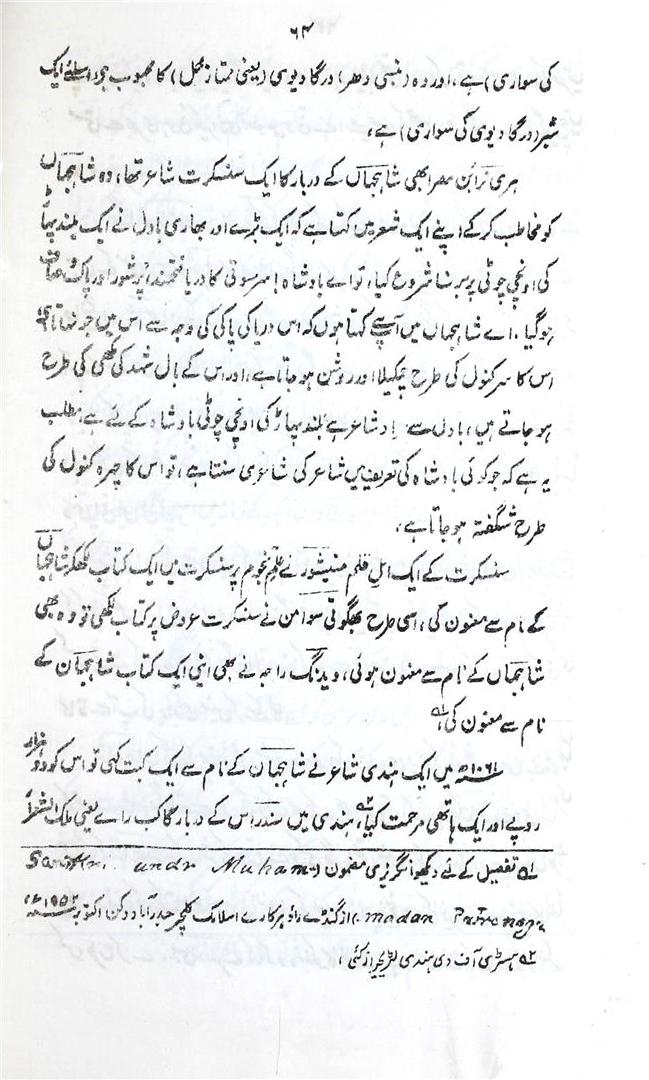 ۶۴
کی سواری) ہے، اور وہ (بنسی دھر) درگا دیوی (یعنی ممتاز محل) کا محبوب ہے، اسلئے ایک
شیر (درگا دیوی کی سواری) ہے،
ہری نرائن مصرا بھی شاہجہاں کے دربار کا ایک سنسکرت شاعر تھا، وہ شاہجہاں
کو مخاطب کر کے اپنے ایک شعر میں کہتا ہے کہ ایک بڑے اور بھاری بادل نے ایک بلند پہاڑ
کی اونچی چوٹی پر برسنا شروع کیا، تو اے بادشاہ! سرسوتی کا دریا فتحمند، پُرشور اور پاک و صاف
ہو گیا، اے شاہجہاں میں آپ سے کہتا ہوں کہ اس دریا کی پاکی کی وجہ سے اس میں جو نہاتا ہے
اس کا سر کنول کی طرح چمکیلا اور روشن ہو جاتا ہے، اور اس کے بال شہد کی مکھی کی طرح
ہو جاتے ہیں، بادل سے مراد شاعر ہے بلند پہاڑ کی اونچی چوٹی بادشاہ کے لئے ہے، مطلب
یہ ہے کہ جو کوئی بادشاہ کی تعریف میں شاعر کی شاعری سنتا ہے، تو اس کا چہرہ کنول کی
طرح شگفتہ ہو جاتا ہے،
سنسکرت کے ایک اہل قلم منیشور نے علم نجوم پر سنسکرت میں ایک کتاب لکھکر شاہجہاں
کے نام سے معنون کی، اسی طرح بھگوتی سوامن نے سنسکرت عروض پر کتاب لکھی تو وہ بھی
شاہجہاں کے نام سے معنون ہوئی، ویدنگ راجہ نے بھی اپنی ایک کتاب شاہجہاں کے
نام سے معنون کی،
۱۰۶۱ھ میں ایک ہندی شاعر نے شاہجہاں کے نام سے ایک کبت کہی تو اس کو دو ہزار
روپے اور ایک ہاتھی مرحمت کیا، ہندی میں سندر اس کے دربار کا کب رائے یعنی ملک الشعراء
۱؎ تفصیل کے لئے دیکھو انگریزی مضمون (Sanskri undr Muham-
madan Patronage) از گنڈے راؤ ہرکارے اسلامک کلچر حیدرآباد دکن، اکتوبر ۱۹۵۲ء
۲؎ ہسٹری آف دی ہندی لٹریچر از کئی،